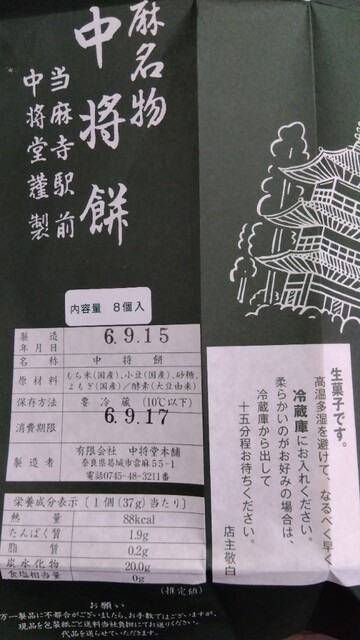 麻名物
中将餅
当麻寺駅前
中将堂謹製
内容量 8個入
製造年月日 6.9.15
名称 中将餅
原材料 もち米(国産)、小豆(国産)、砂糖、
よもぎ(国産)/酵素(大豆由来)
保存方法 要冷蔵(10℃以下)
消費期限 6.9.17
製造者 有限会社 中将堂本舗
奈良県葛城市當麻55-1
電話0745-48-3211番
栄養成分表示〔1個(37g)当たり〕
熱量 88kcal
たんぱく質 1.9g
脂質 0.2g
炭水化物 20.0g
食塩相当量 0g
(推定値)
生菓子です。
高温多湿を避けて、なるべく早く
冷蔵庫にお入れください。
柔らかいのがお好みの場合は、
冷蔵庫から出して
十五分程お待ちください。
店主敬白
お願い
万一製品に不都合がございましたら、お手数ではございますが、
現品を包装紙ごと送料当社負担にてお送りください。
代品を送らせていただきます。